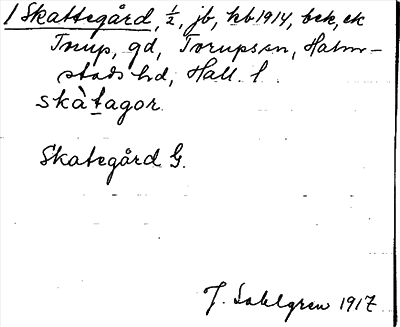 1 Skattegård, ½, jb, kb 1914, bek, ek
Torup, gd, Torups sn, Halm-
stads hd, Hall. l.
skàtagor.
Skategård G.
J. Sahlgren 1917